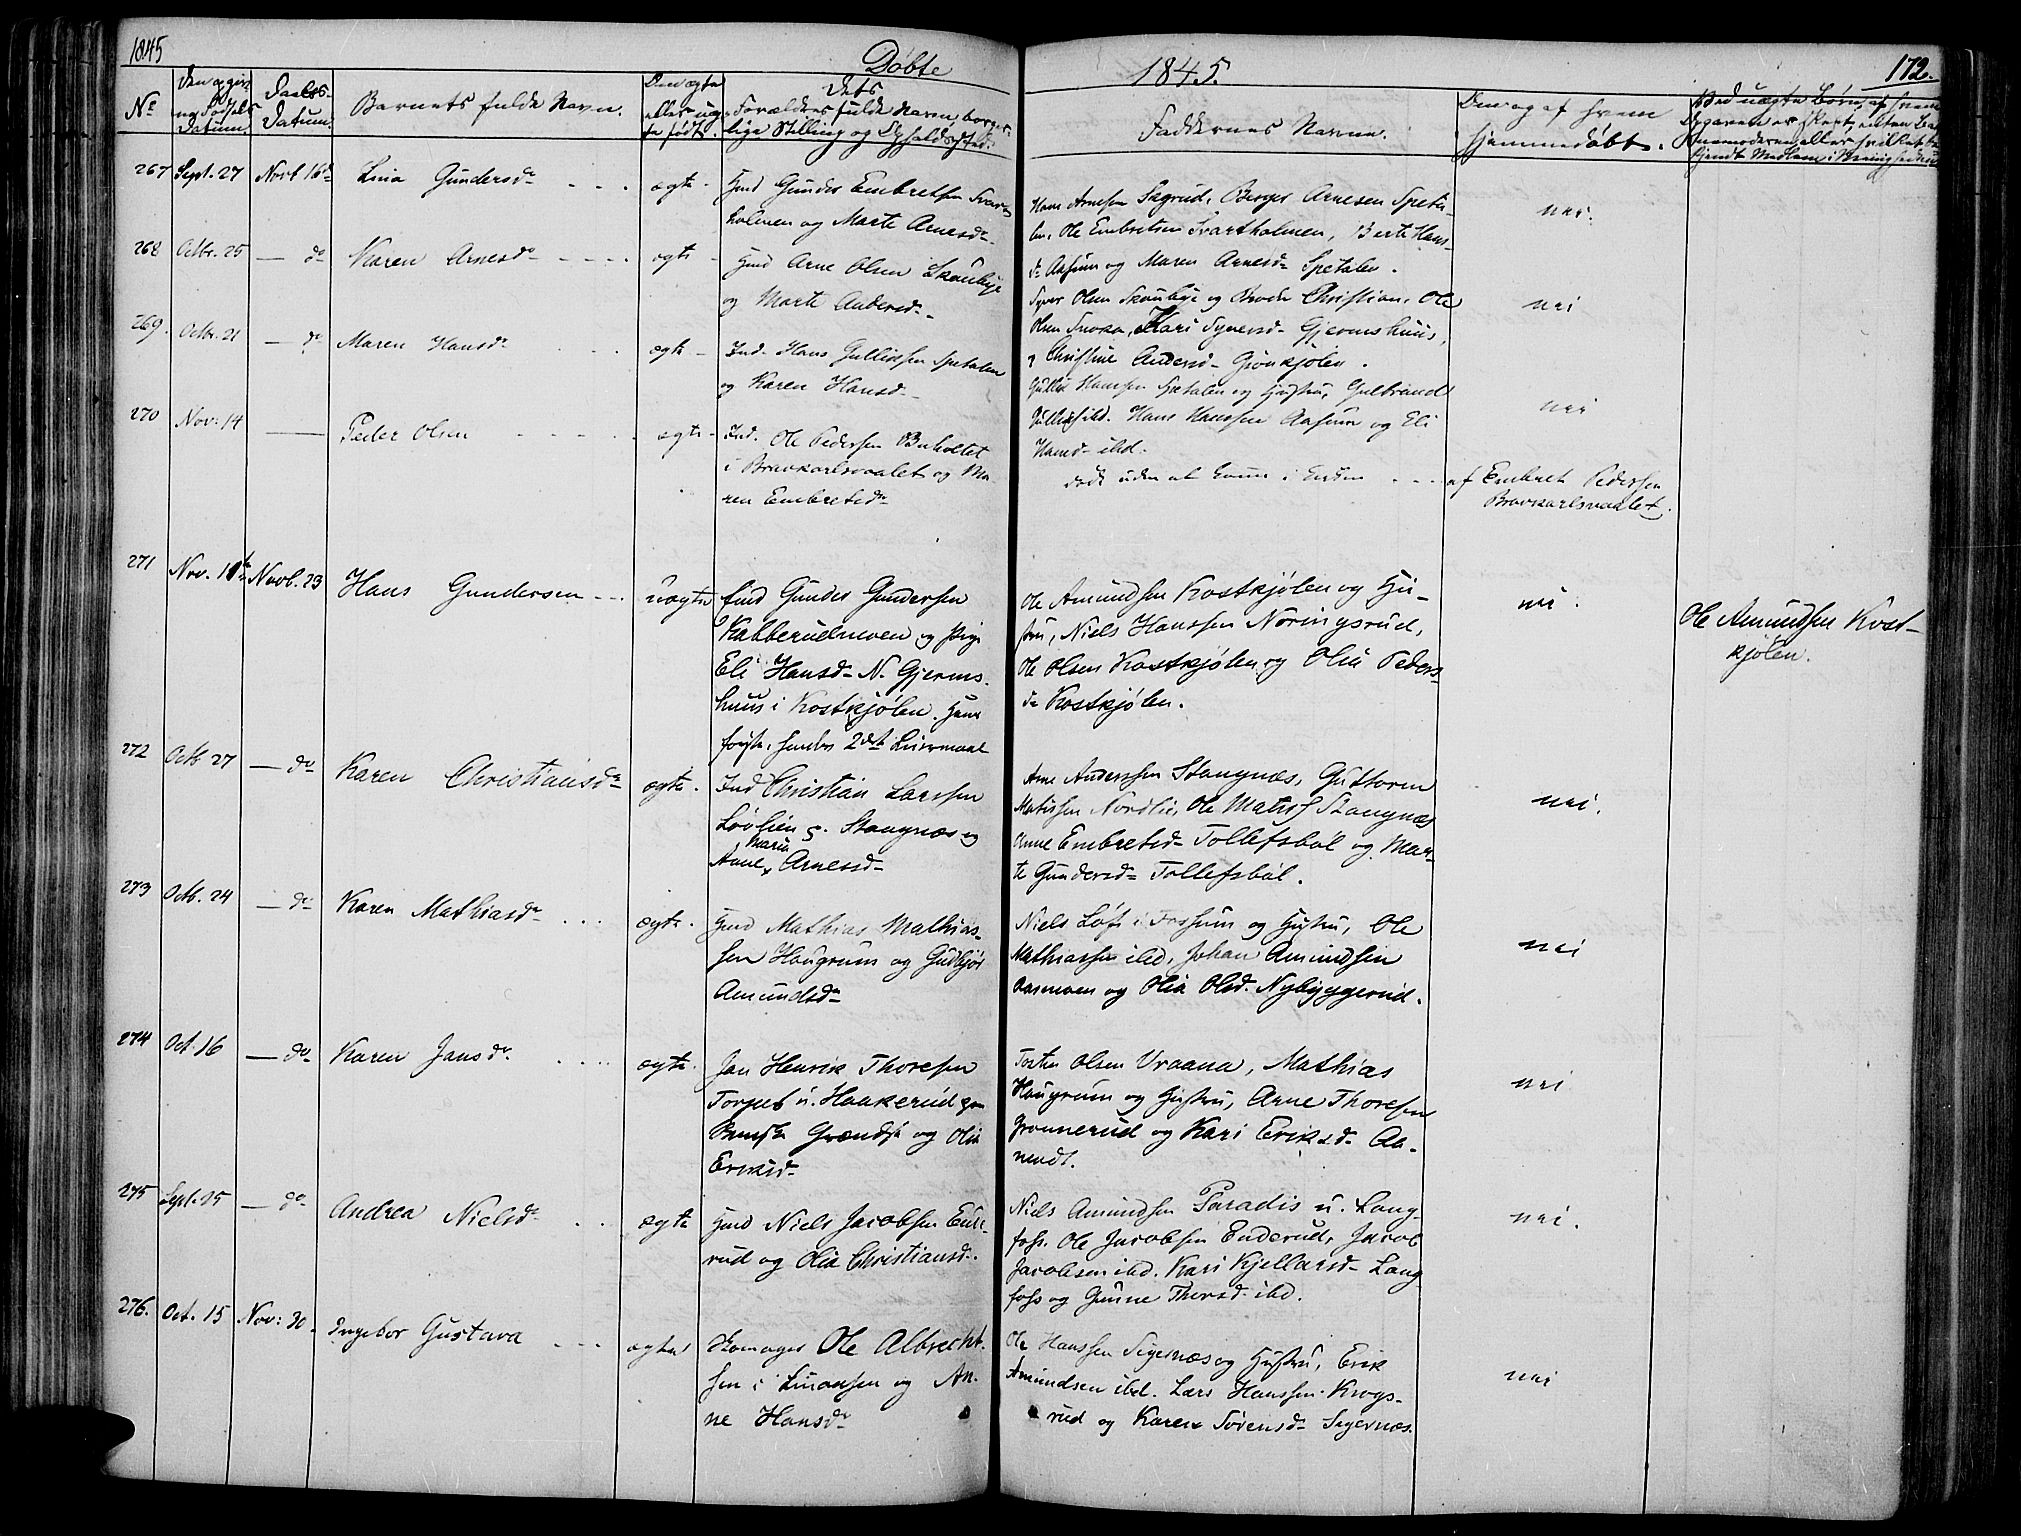 1845
Döbte
1845.
172.
No
Datum
Daabs-
Datum.
Barnets fulde Navn.
Dets
Forældres fulde Navn, borger-
lige Stilling og Opholdssted.
Faddernes Navne.
Om og af hvem
hjemmedøbt.
267 Sept. 27 Novb 16de Lina Gundersdr - - - ægte - Hmd Gunder Embretsen Svart-
holmen og Marte Arnesdr
Hans Arnesen Sagrud, Berger Arnesen Speta-
len, Ole Embretsen Svartholmen, Berte Hans-
dr Aasum og Maren Arnesdr Spetalen.
nei.
268 Octbr. 25 — do Karen Arnesdr - - - - ægte - Hmd Arne Olsen Skaubye
og Marte Andersdr
Syver Olsen Skaubye og Broder Christian, Ole
Olsen Snoka, Kari Syversdr Gjermshuus,
og Christine Andersdr Grønkjølen.
nei
269. Octbr. 21 — do Maren Hansdr ægte - Ind. Hans Gullixsen Spetalen
og Karen Hansdr
Gullik Hanssen Spetalen og Hustru, Gulbrand
Gullixs ibd. Hans Hanssen Aasum og Eli
Hansd- ibd.
nei
270 Nov: 14 —— Peder Olsen - - - - ægte - Ind. Ole Pedersen Buholtet
i Bravkarlsvaalet og Ma-
ren Embretsdr
døde uden at komme i Kirken - - - af Embret Pedersen
Bravkarlsvaalet.
271 Nov. 11te Novb. 23 Hans Gundersen - - - uægte Gunder Gundersen
Kabberudmoen og Pige
Eli Hansd- N. Gjerms-
huus i Kostkjølen. Hans
første, hendes 2det Leiermaal
Ole Amundsen Kostkjølen og Hu-
stru, Niels Hanssen Noringsrud,
Ole Olsen Kostkjølen og Olia Peders-
dr Kostkjølen.
nei.
Ole Amundsen Kost-
kjølen.
272 Octb 27 — do Karen Christiansdr ægte - Ind Christian Larssen
Løvlien u. Stangnæs og
Anne Maria Arnesd-
Arne Anderssen Stangnæs, Guttorm
Matissen Nordlie, Ole Matiss Stangnæs
Anne Embretsd- Tollefsbøl og Mar-
te Gundersd- Tollefsbøl.
nei.
273 Octb. 24 — do Karen Mathiasdr . . . ægte. Hmd Mathias Mathias-
sen Haugrum og Gudbjør
Amundsdr
Niels Løft i Fossum og Hustru, Ole
Mathiassen ibd, Johan Amundsen
Aasmoen og Olia Olsd. Nybyggerud.
nei
274 Oct. 16 — do Karen Jansdr. . . . . ægte. Jan Henrik Thoresen
Torpet u. Haakerud paa
Svenske Grændse og Olia
Eriksd-
Torsten Olsen Vraana, Mathias
Haugrum og Hustru, Arne Thoresen
Grønnerud og Kari Eriksd- Aa-
modt.
nei
275 Sept. 25 — do Andrea Nielsdr . . ægte Hmd Niels Jacobsen Ende-
rud og Olia Christiansd-.
Niels Amundsen Paradis u. Lang-
foss. Ole Jacobsen Enderud, Jacob
Jacobsen ibd. Kari Kjellarsd- Lang-
foss og Gunne Thorsd- ibd.
nei.
276. Oct. 15 Nov: 30. Ingebor Gustava - - - ægte Skomager Ole Albrecht-
sen i Linaasen og An-
ne Hansdr
Ole Hanssen Sigernæs og Hustru, Erik
Amundsen ibd. Lars Hanssen Krogs-
rud og Karen Sørensd- Sigernæs.
nei